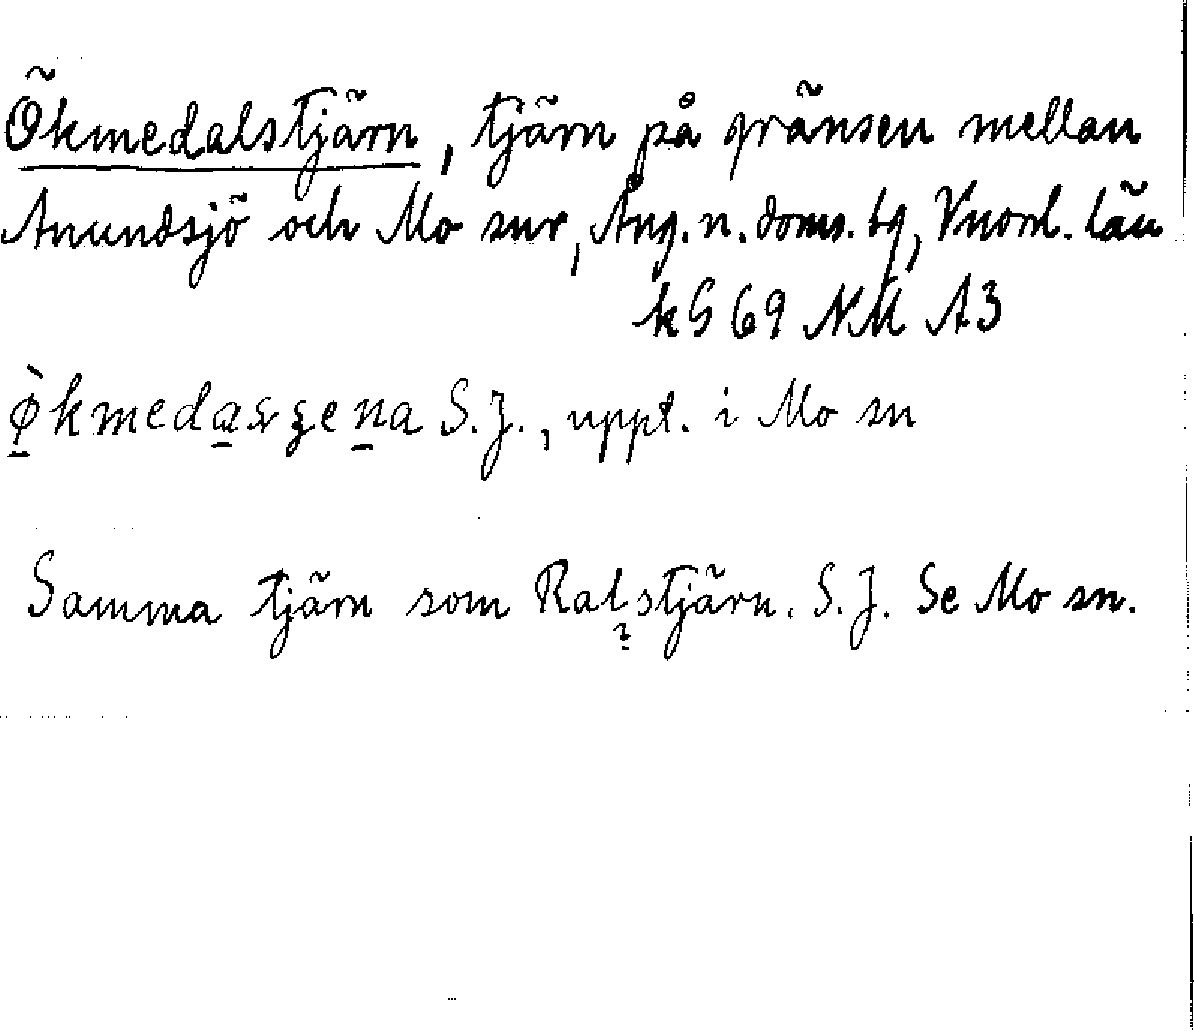 Ökmedalstjärn, tjärn på gränsen mellan
Anundsjö och Mo snr, Ång. n. doms. tg, Vnorrl. län
k G 69 NM A3
S. J., uppt. i Mo sn
Samma tjärn som Ratstjärn. S. J. Se Mo sn.